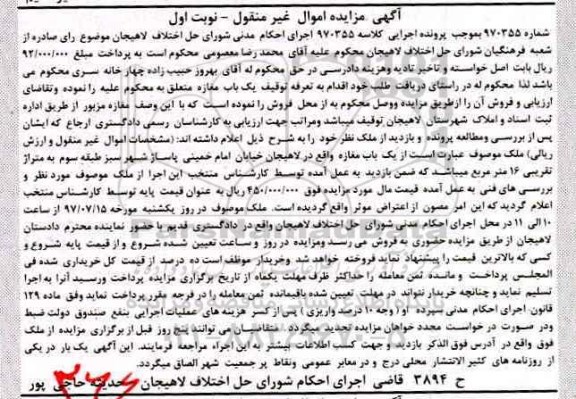 آگهی مزایده اموال غیر منقول - نوبت اول
شماره ۹۷۰۳۵۵ بموجب پرونده اجرایی کلاسه ۹۷۰۳۵۵ اجرای احکام مدنی شورای حل اختلاف لاهیجان موضوع رای صادره از
شعبه فرهنگیان شورای حل اختلاف لاهیجان محکوم علیه آقای محمد رضا معصومی محکوم است به پرداخت مبلغ ۹۳/۰۰۰/۰۰۰
ریال بابت اصل خواسته و تاخیر تادیه وهزینه دادرسی در حق محکوم له آقای بهروز حبیب زاده چهار خانه سری محکوم می
باشد لذا محکوم له در راستای دریافت طلب خود اقدام به تعرفه توقیف یک باب مغازه متعلق به محکوم علیه را نموده وتقاضای
ارزیابی و فروش آن را ازطریق مزایده ووصل محکوم به از محل فروش را نموده است که با این وصف مغازه مزبور از طریق اداره
ثبت اسناد و املاک شهرستان لاهیجان توقیف میباشد ومراتب جهت ارزیابی به کارشناسان رسمی دادگستری ارجاع که ایشان
پس از بررسی ومطالعه پرونده و بازدید از ملک نظر خود را به شرح ذیل اعلام داشته اند: (مشخصات اموال غیر منقول و ارزش
ریالی) ملک موصوف عبارت است از یک باب مغازه واقع در لاهیجان خیابان امام خمینی پاساژ شهر سبز طبقه سوم به متراژ
تقریبی ۱۶ متر مربع میباشد که ضمن بازدید به عمل آمده توسط کارشناس منتخب این اجرا از ملک موصوف مورد نظر و
بررسی های فنی به عمل آمده قیمت مال مورد مزایده فوق ۴۵۰/۰۰۰/۰۰۰ ریال به عنوان قیمت پایه توسط کارشناس منتخب
اعلام گردید که این امر مصون از اعتراض موثر واقع گردیده است. ملک موصوف در روز یکشنبه مورخه ۹۷/۰۷/۱۵ از ساعت
۱۰ الی ۱۱ در محل اجرای احکام مدنی شورای حل اختلاف لاهیجان واقع در دادگستری قدیم با حضور نماینده محترم دادستان
لاهیجان از طریق مزایده حضوری به فروش می رسد ومزایده در روز و ساعت تعیین شده شروع و از قیمت پایه شروع و
کسی که بالاترین قیمت را پیشنهاد نماید فروخته خواهد شد وخریدار موظف است ده درصد از قیمت کل خریداری شده فی
المجلس پرداخت و مانده ثمن معامله را حداکثر ظرف مهلت یکماه از تاریخ برگزاری مزایده پرداخت ورسید آنرا به اجرا
تسلیم نماید و چنانچه خریدار نتواند در مهلت تعیین شده باقیمانده ثمن معامله را در فرجه مقرر پرداخت نماید وفق ماده ۱۲۹
قانون اجرای احکام مدنی سپرده او (وجه ۱۰ درصد واریزی) پس از کسر هزینه های عملیات اجرایی بنفع صندوق دولت ضبط
ودر صورت در خواست مجدد خواهان مزایده تجدید میگردد. متقاضیان می توانند پنج روز قبل از برگزاری مزایده از ملک
فوق واقع در آدرس فوق الذکر بازدید و جهت کسب اطلاعات بیشتر به این اجراء مراجعه فرمایند. این آگهی یک بار در یکی
از روزنامه های کثیر الانتشار محلی درج و در معابر عمومی ونقاط پر جمعیت شهر الصاق میگردد.
ح ۳۸۹۴ قاضی اجرای احکام شورای حل اختلاف لاهیجان - حدیثه حاجی پور